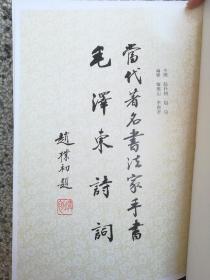 當代著名書法家手書
毛澤東詩詞
趙樸初題